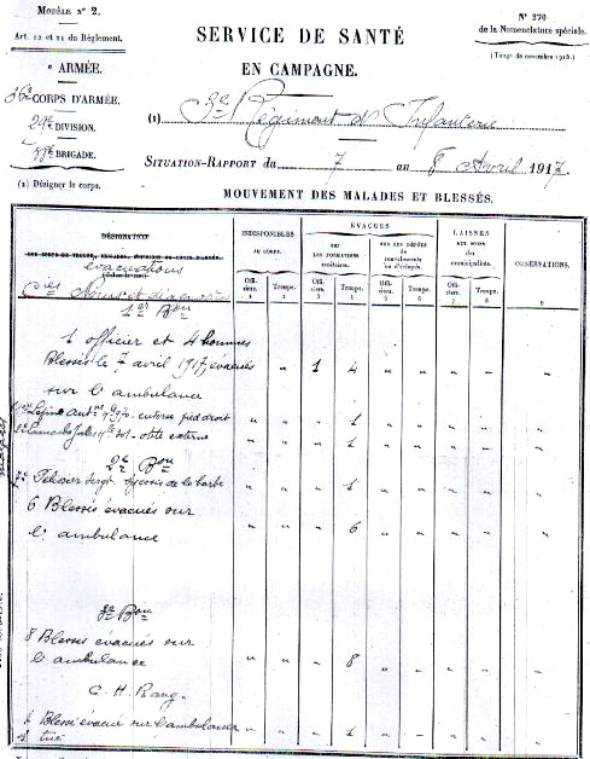 MODÈLE N° 2.
Art. 12 et 21 du Règlement.
° ARMÉE.
36e CORPS D'ARMÉE.
29e DIVISION.
BRIGADE.
(1) Désigner le corps.
SERVICE DE SANTÉ
EN CAMPAGNE.
N° 370
de la Nomenclature spéciale.
(Tirage de novembre 1915.)
(1) 3e Régiment d'Infanterie
SITUATION-RAPPORT du 7 au 8 Avril 1917.
MOUVEMENT DES MALADES ET BLESSÉS.
DÉSIGNATION
évacuations
Cies Noms et diagnostic
INDISPONIBLES
AU CORPS.
ÉVACUÉS
SUR
LES FORMATIONS
sanitaires.
SUR LES DÉPÔTS
de
convalescents
ou d'éclopés.
LAISSÉS
AUX SOINS
des
municipalités.
OBSERVATIONS.
Officiers. Troupe. Officiers. Troupe. Officiers. Troupe. Officiers. Troupe.
1 2 3 4 5 6 7 8 9
1er Bon
1 officier et 4 hommes
Blessés le 7 avril 1917, évacués " " 1 4 " " " " "
sur l'ambulance
entorse pied droit " " " 1 " " " " "
Jules otite externe " " " 1 " " " " "
2e Bon
de la barbe " " " 1 " " " " "
6 Blessés évacués sur
l'ambulance " " " 6 " " " " "
3e Bon
8 Blessés évacués sur
l'ambulance " " " 8 " " " " "
C. H. Rang.
1 Blessé évacué sur l'ambulance " " " 1 " " " " "
tué